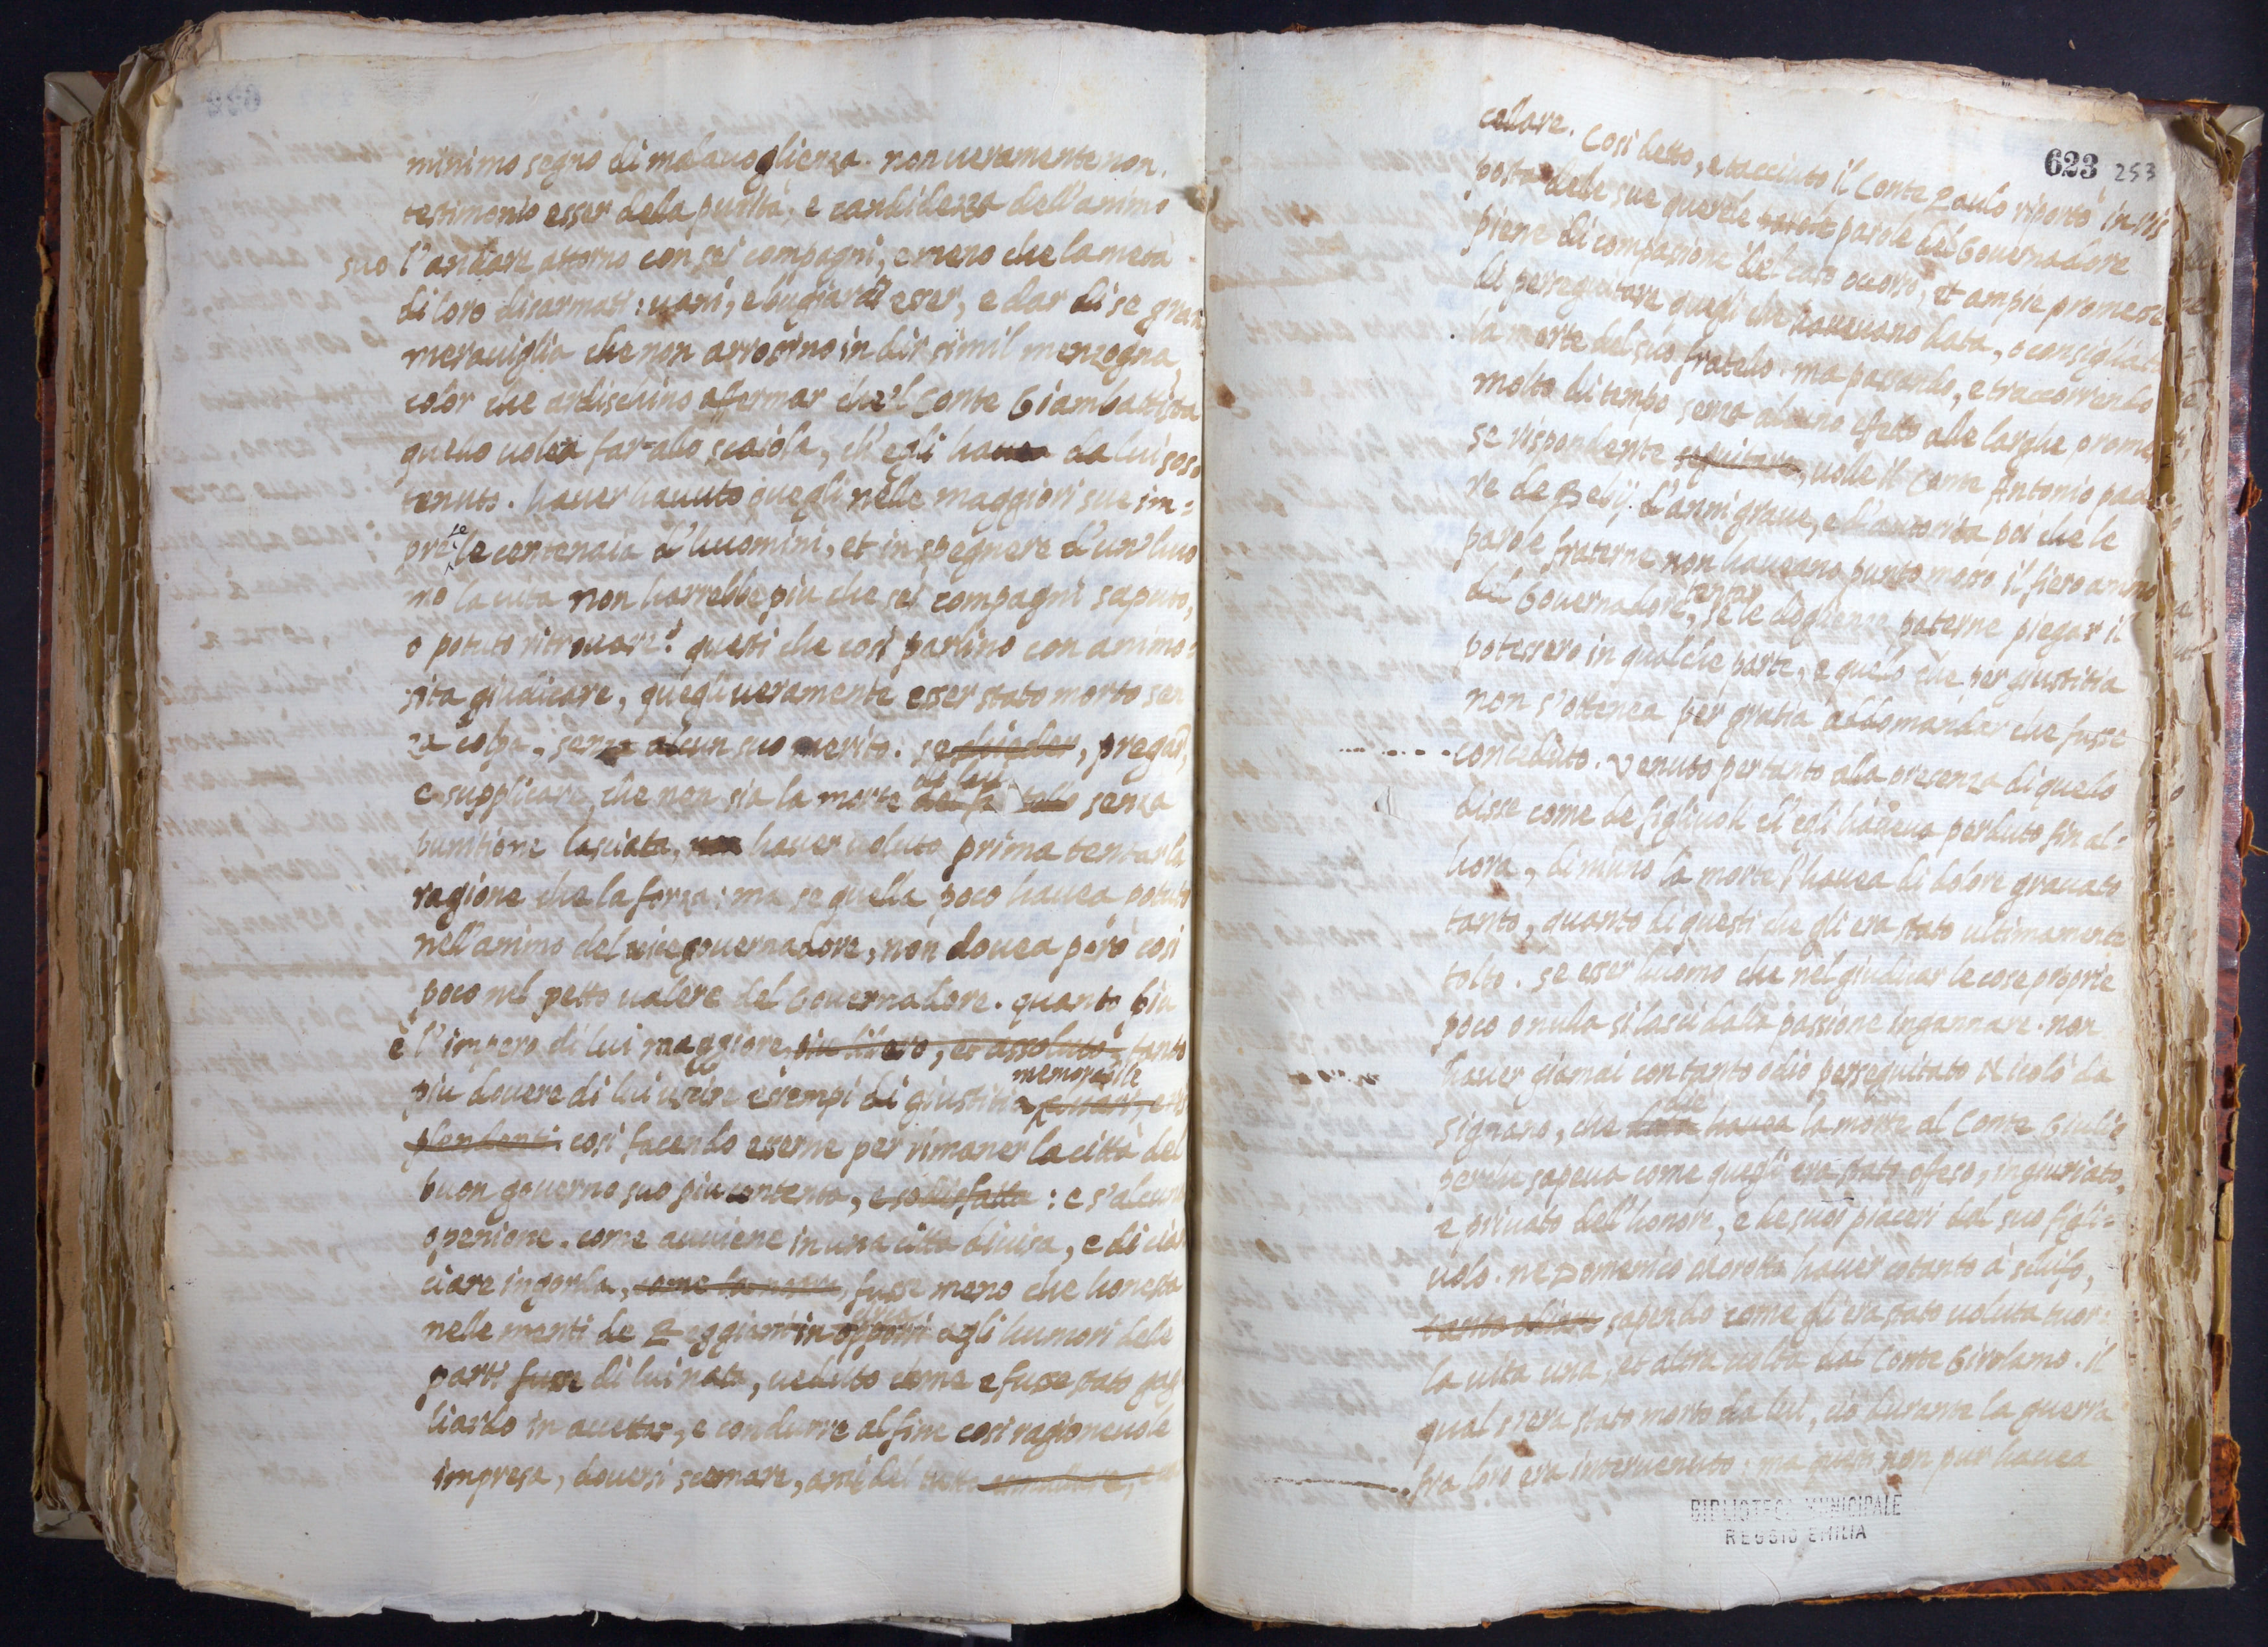 minimo segno di malauoglienza. non ueramente non.
testimonio esser dela purità, e candidezza dell'animo
suo l'andare attorno con sei compagni, e meno che la metà
di loro disarmati: uani, e bugiardi esser, e dar di se gran
merauiglia che non arrosino in dir simil menzogna,
color che ardischino affermar che'l Conte Giambattista
quello uolea far alo scaiola, ch'egli hauea da lui sos
tenuto. hauer hauuto quegli nelle maggiori sue im=
prese le centenaia d'huomini, et in spegnere d'un'huo
mo la uita non harrebbe piu che sei compagni saputo,
o potuto ritrouare? questi che cosi parlino con animo=
sita giudicare, quegli ueramente esser stato morto sen
za colpa, senza alcun suo merito. se chieder, pregar,
e supplicare, che non sia la morte di lui senza
punitione lasciata, hauer uoluto prima tentar la
ragione che la forza: ma se quella poco hauea potuto
nell'animo del uicegouernadore, non douea però cosi
poco nel petto ualere del Gouernadore. quanto piu
è l'impero di lui maggiore, piu libero, et assoluto, tanto
piu douere di lui uscire essempi di giustitia memorabile
plendenti. cosi facendo esserne per rimaner la città del
buon gouerno suo piu contenta, e sodisfatta: e s'alcuna
openione. come auuiene in una città diuisa, e di cian
ciare ingorda, come la nostra, fusse meno che honesta
nele menti de Reggiani in agli humori dele
parti fusse di lui nata, ueduto come e fusse stato gag
liardo in accettar, e condurre al fine cosi ragioneuole
impresa, douersi scemare, anzi del tutto
623 253
celare. Cosi detto, e tacciuto il Conte Paulo riportò in ris
posta dele sue querele parole parole del Gouernadore
piene di compasione del caso occorso, et ampie promesse
di perseguitare quegli che haueuano data, o consigliata
la morte del suo fratelo. ma passando, e traccorrendo
molto di tempo senza alcuno effetto alle larghe prome
se rispondente seguitare, uolle il Conte Antonio pad
re de Bebij. d'anni graue, e d'autorità poi che le
parole fraterne non haueano punto mosso il fiero animo
del Gouernadore, tentar se le doglienze paterne piegar il
potessero in qualche parte, e quelo che per giustitia
non s'ottenea per gratia addomandar che fusse
conceduto. Venuto pertanto ala presenza di quelo
disse come de figliuoli ch'egli haueua perduto fin al=
hora, di niuno la morte l'hauea di dolore grauato
tanto, quanto di questi che gli era stato ultimamente
tolto. se esser huomo che nel giudicar le cose proprie
poco o nulla si lasci dala passione ingannare. non
hauer giamai con tanto odio perseguitato Nicolò da
signano, che die hauea la morte al Conte Giulio
perche sapeua come quegli era stato offeso, ingiuriato,
e priuato dell'honore, e de suoi piaceri dal suo figli=
uolo. ne Domenico Morotta hauer cotanto à schifo,
tanto odiare sapendo come gli era stato uoluta tuor=
la uita una, et altra uolta dal Conte Girolamo. il
qual s'era stato morto da lui, ciò durante la guerra
fra loro era interuenuto. ma questi non pur hauea
BIBLIOTECA MUNICIPALE
REGGIO EMILIA